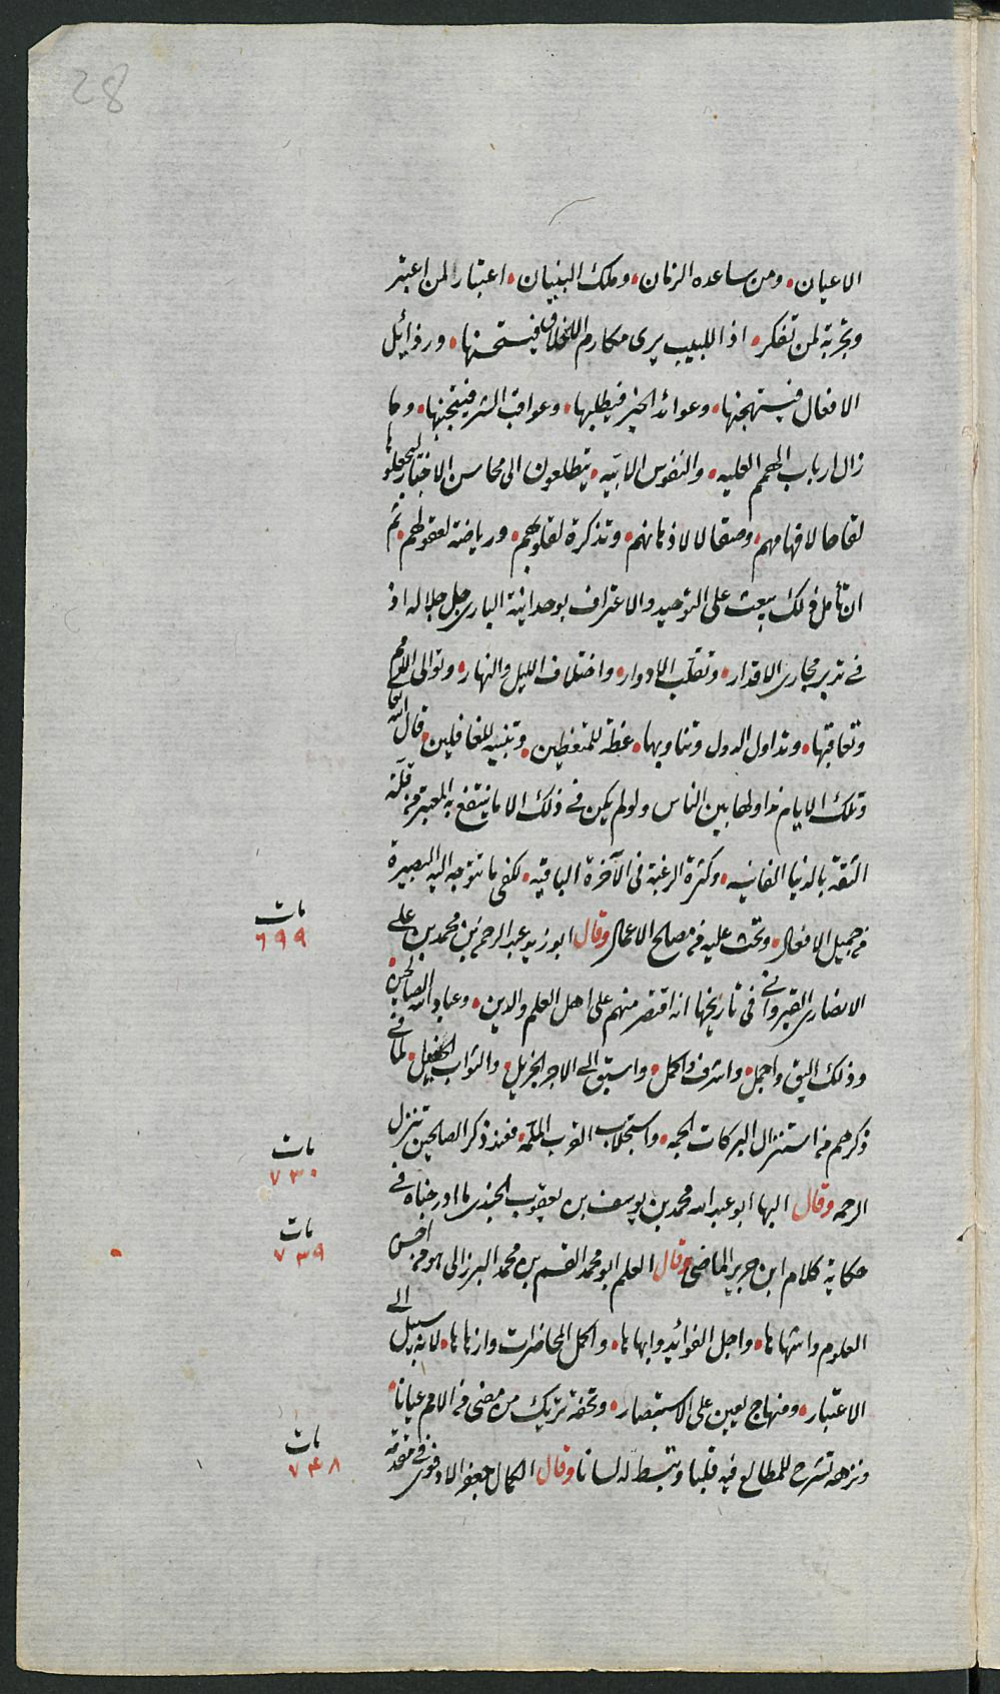 28
الاعيان، ومن ساعده الزمان، وملك البنيان، اعتبارا لمن اعتبر
وتجربة لمن تفكر، اذ اللبيب يرى مكارم الاخلاق فيستحسنها، ورذائل
الافعال فيستهجنها، وعوائد الخير فيطلبها، وعواقب الشر فيتجنبها، وما
زال ارباب الهمم العليه، والنفوس الابيه، يتطلعون الى محاسن الاخبار ليجعلوها
لقاحا لافهامهم، وصقالا لاذهانهم، وتذكرة لقلوبهم، ورياضة لعقولهم، ثم
ان تأمل ذلك يبعث على التوحيد والاعتراف بوحدانية البارى جل جلاله اذ
في تدبر مجارى الاقدار، وتقلب الادوار، واختلاف الليل والنهار، وتوالى الامم
وتعاقبها، وتداول الدول وتناوبها، عظة للمتعظين، وتنبيه للغافلين، قال الله تعالى
وتلك الايام نداولها بين الناس ولو لم يكن في ذلك الا ما ينتفع به المعتبر من قلة
الثقة بالدنيا الفانيه، وكثرة الرغبة في الآخرة الباقيه، لكفى ما تتوجه اليه البصيرة
من جميل الافعال، وتحث عليه من مصالح الاعمال وقال ابو زيد عبد الرحمن بن محمد بن على
مات
٦٩٩
الانصارى القيروانى في تاريخها انه اقتصر منهم على اهل العلم والدين، وعباد الله الصالحين،
وذلك اليق واجمل، واشرف واكمل، واستبق الى الاجر الجزيل، والثواب الحفيل، لما في
ذكرهم من استنزال البركات الجمه، واستجلاب القرب الملمه، فعند ذكر الصالحين تنزل
مات
٧٣٠
الرحمه وقال البها ابو عبد الله محمد بن يوسف بن يعقوب الجندى ما ادرجناه في
مات
٧٣٩
حكاية كلام ابن جرير الماضى وقال العلم ابو محمد القسم بن محمد البرزالى هو من احسن
العلوم واشهاها، واجل الفوائد وابهاها، واكمل المحاضرات وازهاها، لانه سبيل الى
الاعتبار، ومنهاج يعين على الاستبصار، وتحفة تريك من مضى من الامم عيانا،
ونزهة تشرح للمطالع فيه قلبا وتبسط له لسانا وقال الكمال جعفر الادفوى في مقدمة
مات
٧٤٨